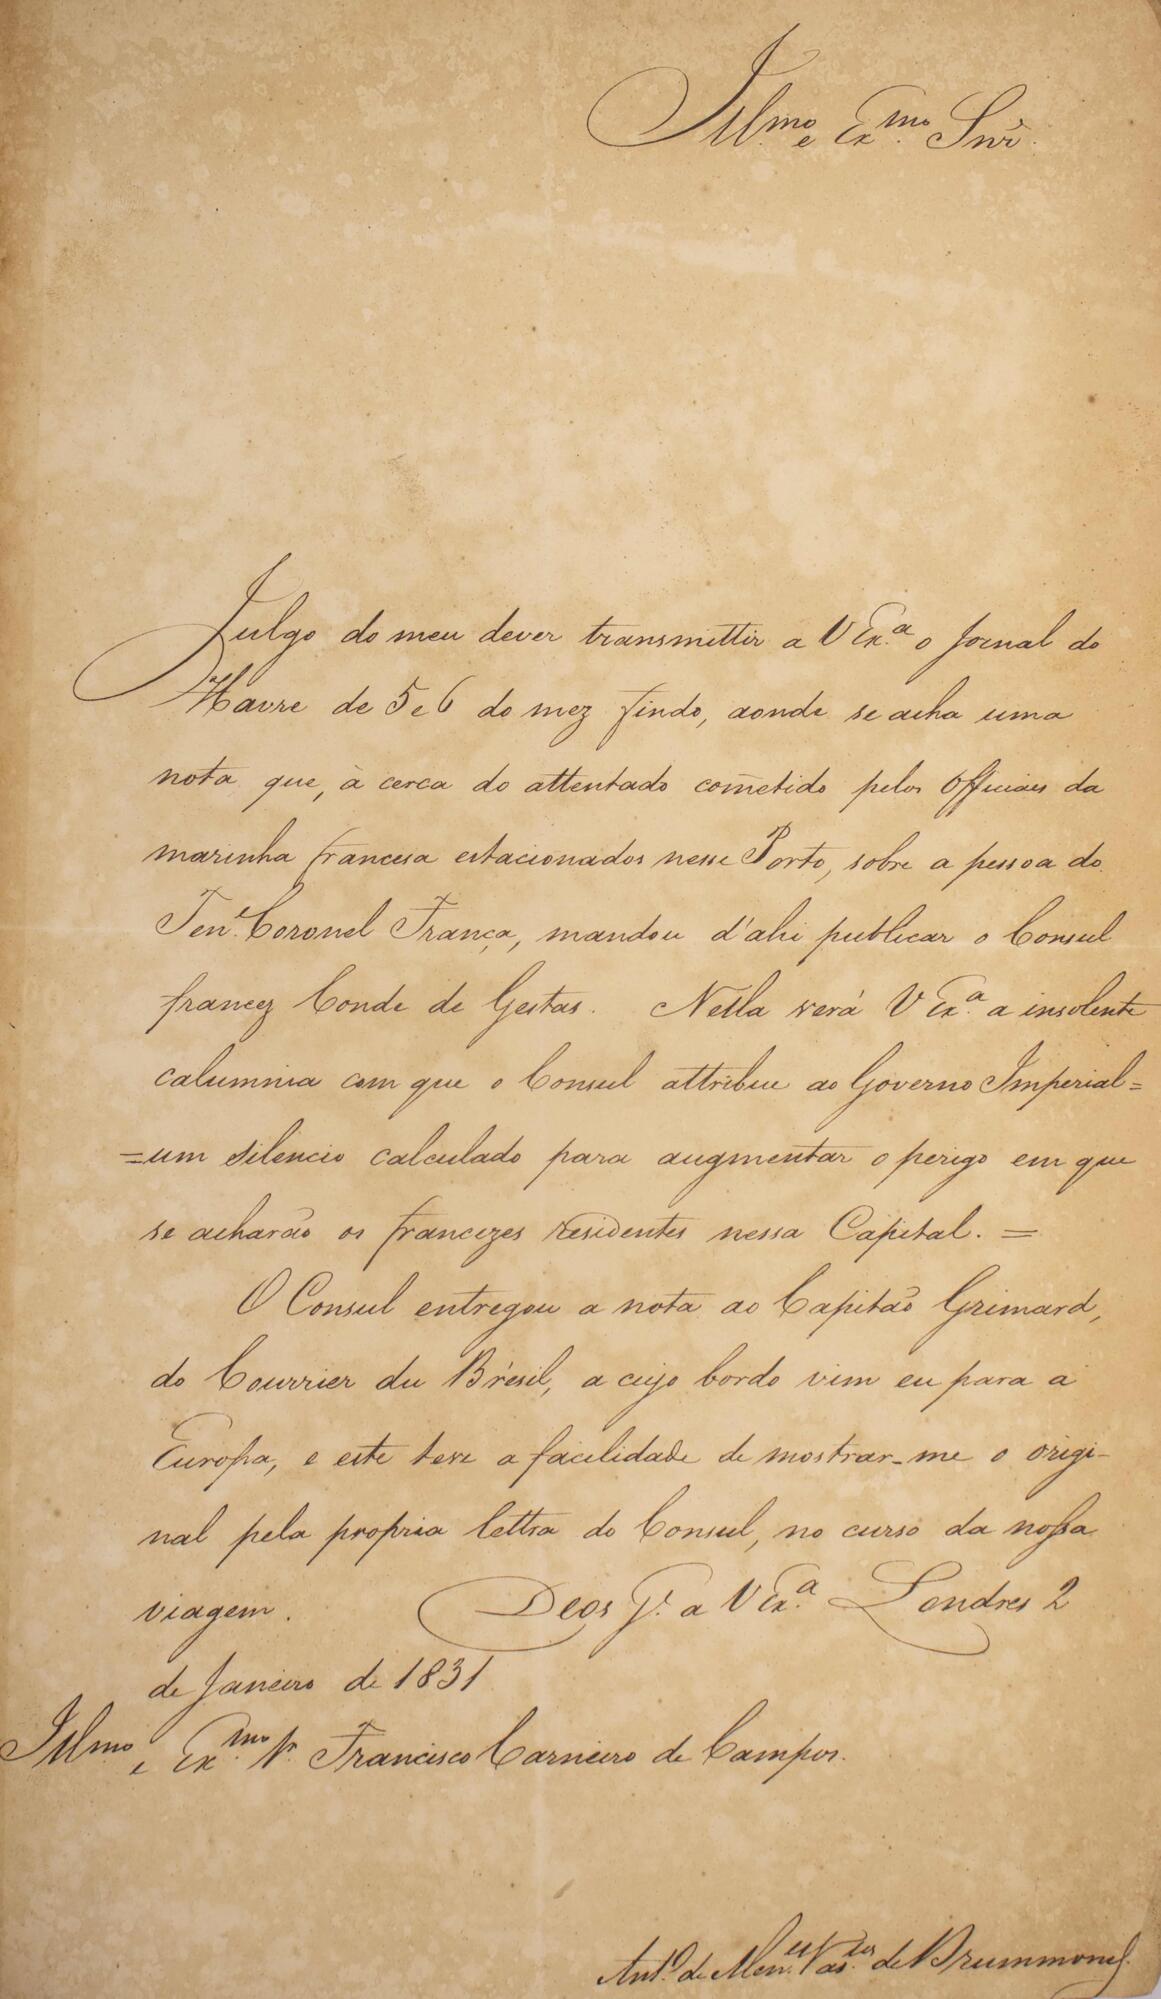 Illmo e Exmo Snr.
Julgo do meu dever transmittir a V Exa. o Jornal do
Havre de 5 e 6 do mez findo, aonde se acha uma
nota que, à cerca do attentado com̃etido pelos Officiaes da
marinha francesa estacionados nesse Porto, sobre a pessoa do
Tene. Coronel França, mandou d'ahi publicar o Consul
francez Conde de Gestas. Nella verá V Exa. a insolente
calumnia com que o Consul attribue ao Governo Imperial=
=um silencio calculado para augmentar o perigo em que
se acharão os francezes residentes nessa Capital. =
O Consul entregou a nota ao Capitão Grimard,
do Courrier du Brésil, a cujo bordo vim eu para a
Europa, e este teve a facilidade de mostrar-me o origi-
nal pela propria lettra do Consul, no curso da nossa
viagem. Deos Ge. a V Exa. Londres 2
de Janeiro de 1831
Illmo e Exmo Sr. Francisco Carneiro de Campos.
Anto. de Menes. Vascos. de Drummond.